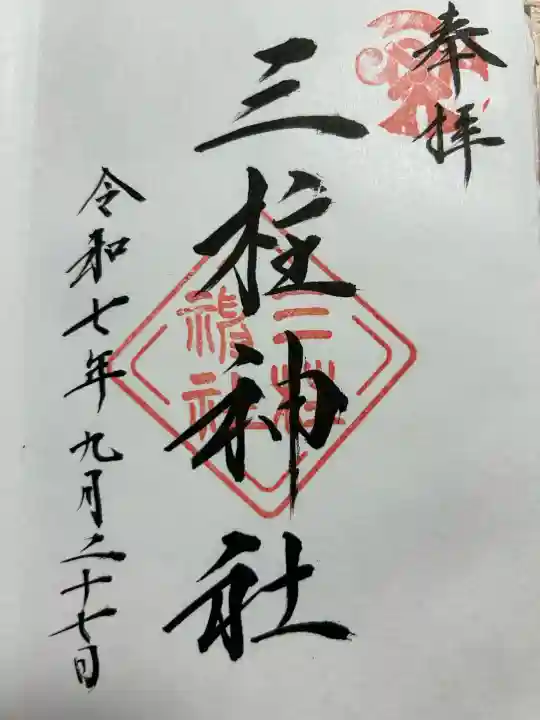 奉拝
三柱神社
三柱
神社
令和七年九月二十七日